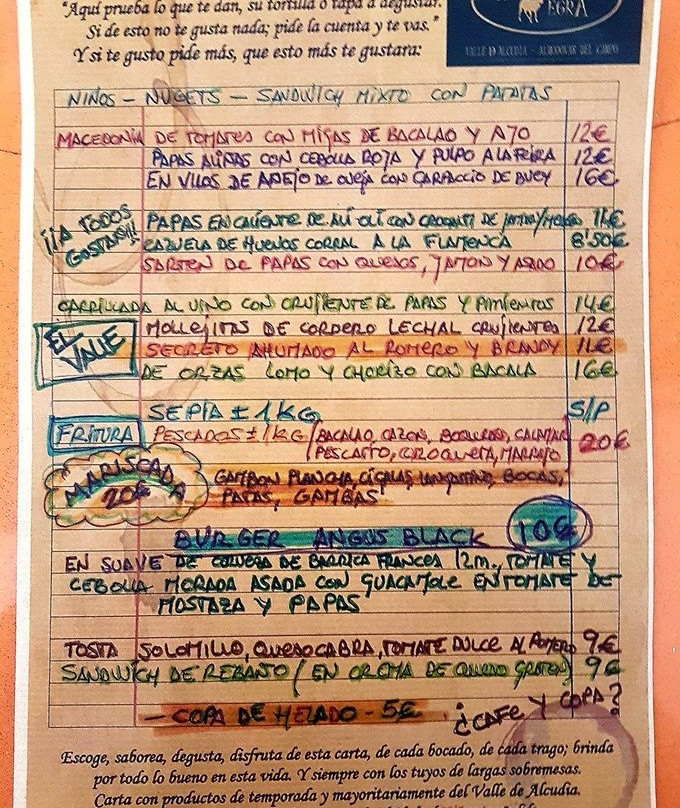 "Aquí prueba lo que te dan, su tortilla o tapa a degustar.
Si de esto no te gusta nada; pide la cuenta y te vas."
Y si te gusto pide más, que esto más te gustara:
EGRA
VALLE D ALCUDIA - ALMODOVAR DEL CAMPO
NIÑOS - NUGETS - SANDWICH MIXTO CON PATATAS
MACEDONIA DE TOMATES CON MIGAS DE BACALAO Y AJO 12€
PAPAS ALIÑAS CON CEBOLLA ROJA Y PULPO A LA FEIRA 12€
EN VILOS DE AÑEJO DE OVEJA CON CARPACCIO DE BUEY 16€
¡¡A TODOS GUSTARÁ!!
PAPAS EN CALIENTE DE ALI OLI CON CROCANTI DE JAMON/ 11€
CAZUELA DE HUEVOS CORRAL A LA FLAMENCA 8'50€
SARTEN DE PAPAS CON QUESOS, JAMON Y ASADO 10€
CARRILLADA AL VINO CON CRUJIENTE DE PAPAS Y PIMIENTOS 14€
EL VALLE
MOLLEJITAS DE CORDERO LECHAL CRUJIENTES 12€
SECRETO AHUMADO AL ROMERO Y BRANDY 11€
DE ORZAS LOMO Y CHORIZO CON BACALA 16€
SEPIA ± 1 KG S/P
FRITURA PESCADOS ± 1 KG / BACALAO, CAZON, BOQUERON, CALAMAR
PESCAITO, CROQUETA, MARRAJO 20€
MARISCADA 20€
GAMBON PLANCHA, CIGALAS, LANGOSTINO, BOCAS,
PATAS, GAMBAS
BURGER ANGUS BLACK 10€
EN SUAVE DE CERVEZA DE BARRICA FRANCES 12m., TOMATE Y
CEBOLLA MORADA ASADA CON GUACAMOLE EN TOMATE DE
MOSTAZA Y PAPAS
TOSTA SOLOMILLO, QUESO CABRA, TOMATE DULCE AL ROMERO 9€
SANDWICH DE REBAÑO / EN CREMA DE QUESO GRATEN) 9€
- COPA DE HELADO - 5€ ¿CAFE Y COPA?
Escoge, saborea, degusta, disfruta de esta carta, de cada bocado, de cada trago; brinda
por todo lo bueno en esta vida. Y siempre con los tuyos de largas sobremesas.
Carta con productos de temporada y mayoritariamente del Valle de Alcudia.